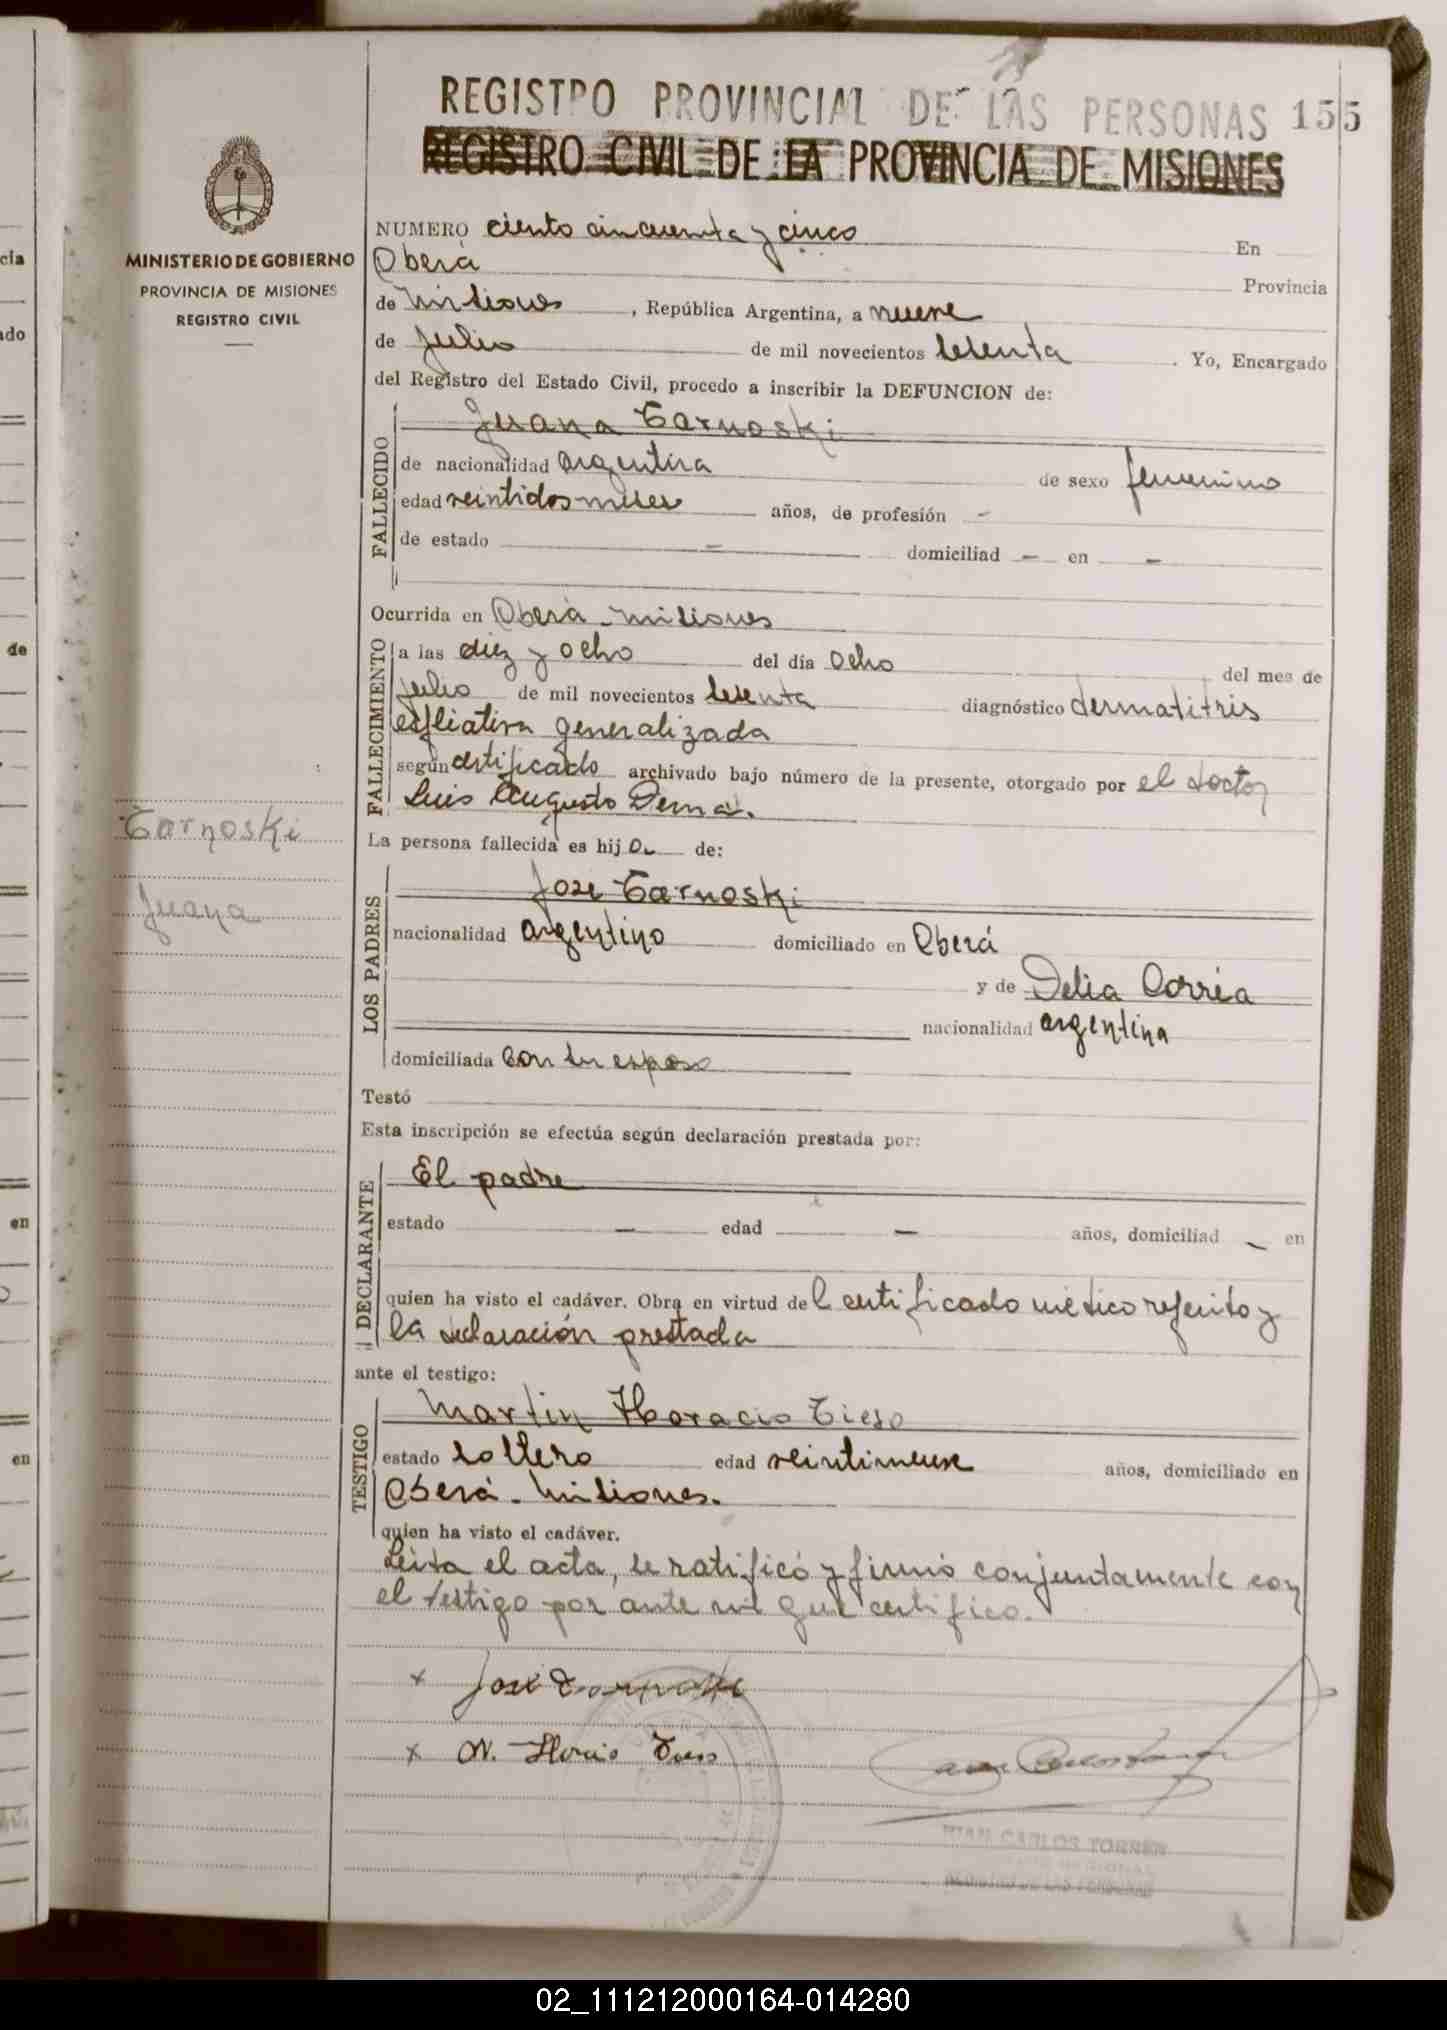 REGISTRO PROVINCIAL DE LAS PERSONAS 155
REGISTRO CIVIL DE LA PROVINCIA DE MISIONES
MINISTERIO DE GOBIERNO
PROVINCIA DE MISIONES
REGISTRO CIVIL
NUMERO ciento cincuenta y cinco En
Oberá Provincia
de Misiones, República Argentina, a nueve
de Julio de mil novecientos setenta. Yo, Encargado
del Registro del Estado Civil, procedo a inscribir la DEFUNCION de:
FALLECIDO
Juana Tarnoski
de nacionalidad argentina de sexo femenino
edad veintidos meses años, de profesión -
de estado - domiciliad - en -
Ocurrida en Oberá - Misiones
FALLECIMIENTO
a las diez y ocho del día ocho del mes de
julio de mil novecientos setenta diagnóstico dermatitris
esfliativa generalizada
según certificado archivado bajo número de la presente, otorgado por el doctor
Luis Augusto Derna.
Tarnoski
Juana
La persona fallecida es hija de:
LOS PADRES
José Tarnoski
nacionalidad argentino domiciliado en Oberá
y de Delia Corrêa
nacionalidad argentina
domiciliada con su esposo
Testó
Esta inscripción se efectúa según declaración prestada por:
DECLARANTE
El padre
estado - edad - años, domiciliad - en
quien ha visto el cadáver. Obra en virtud del certificado médico referido y
la declaración prestada
ante el testigo:
TESTIGO
Martin Horacio Tieso
estado soltero edad veintinueve años, domiciliado en
Oberá - Misiones.
quien ha visto el cadáver.
Leída el acta, se ratificó y firmó conjuntamente con
el testigo por ante mi que certifico.
x José Tarnoski
x M. Horacio Tieso
JUAN CARLOS TORRES
02_111212000164-014280